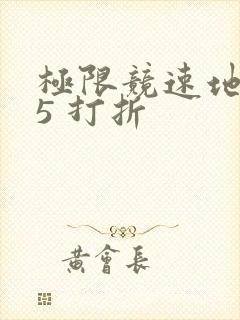 極限競速地
5 打折
黃會長